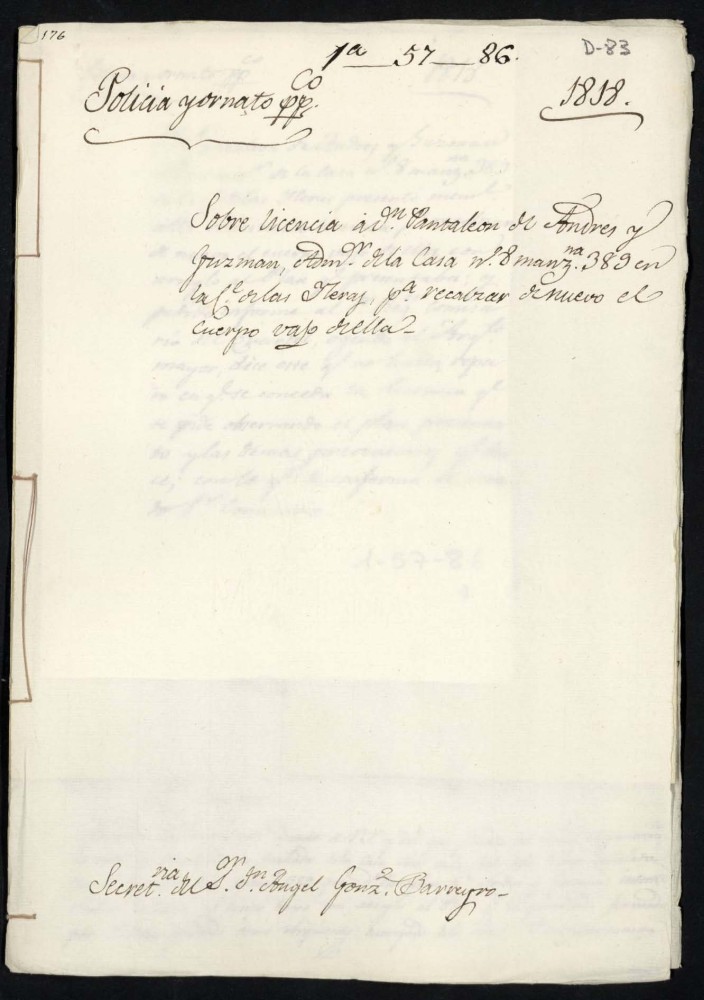 176
1ª 57 86.
D-83
Policia y ornato ppCo.
1818.
Sobre licencia á Dn. Pantaleon de Andres y
Guzman, Admr. de la Casa nº 8 manzna. 389 en
la Ce. de las Heras, pa. recalzar de nuevo el
Cuerpo vajo de ella
Secretria. del Sr. Dn. Angel Gonz. Barreyro